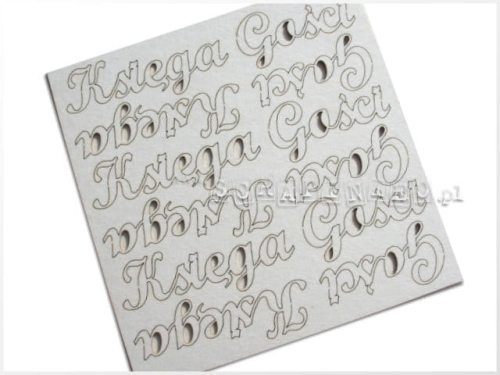 Księga Gości
Księga Gości
Księga Gości
Księga Gości
Księga Gości
Księga Gości